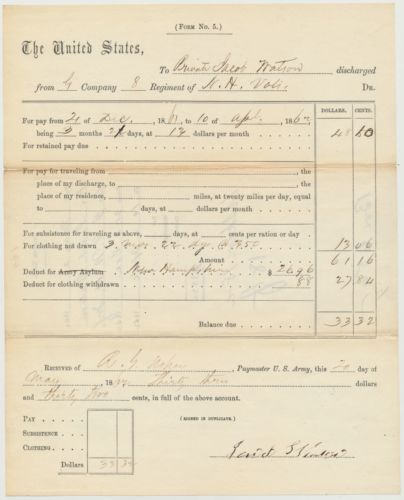 (FORM No. 5.)
The United States,
To Private Jacob Watson discharged
from G Company 8 Regiment of N. H. Vols. DR.
DOLLARS. CENTS.
For pay from 21 of Dec. , 1861, to 10 of Apl. , 1862,
being 3 months 21 days, at 13 dollars per month 48 10
For retained pay due
For pay for traveling from , the
place of my discharge, to , the
place of my residence, miles, at twenty miles per day, equal
to days, at dollars per month
For subsistence for traveling as above, days, at cents per ration or day
For clothing not drawn 3 mos. 22 dys. @ 3.50 13 06
Amount 61 16
Deduct for Army Asylum New Hampshire $ 26 96
Deduct for clothing withdrawn 88 27 84
Balance due 33 32
RECEIVED of , Paymaster U. S. Army, this 20 day of
May , 1862, Thirty three dollars
and thirty two cents, in full of the above account.
PAY
(SIGNED IN DUPLICATE.)
SUBSISTENCE
CLOTHING
Dollars 33 32